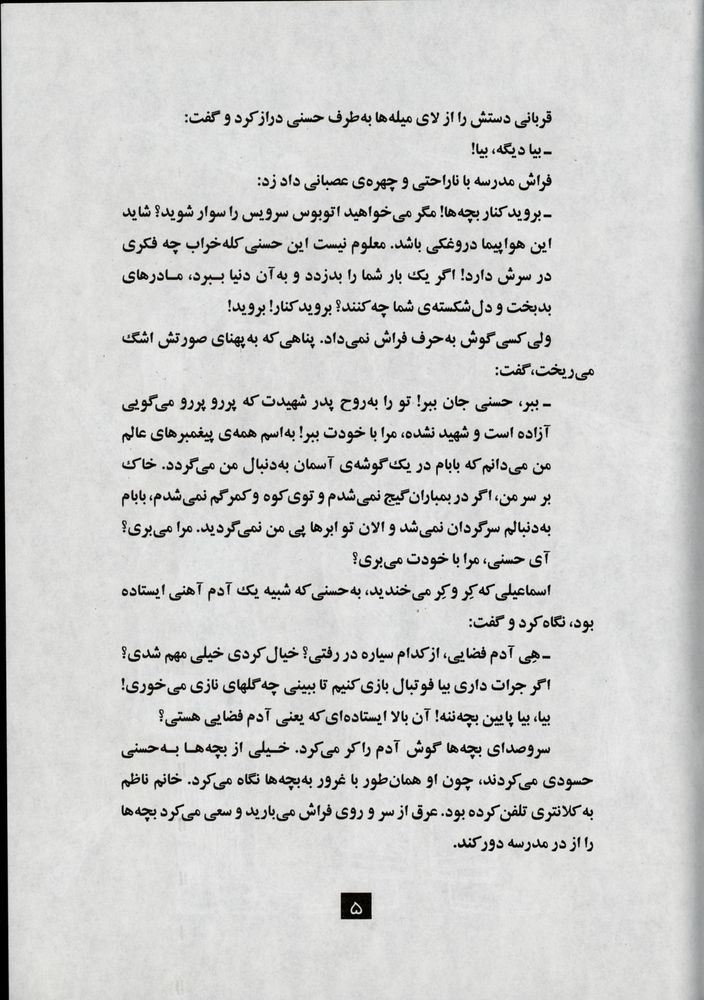 قربانی دستش را از لای میله‌ها به‌طرف حسنی دراز کرد و گفت:
ـ بیا دیگه، بیا!
فراش مدرسه با ناراحتی و چهره‌ی عصبانی داد زد:
ـ بروید کنار بچه‌ها! مگر می‌خواهید اتوبوس سرویس را سوار شوید؟ شاید
این هواپیما دروغکی باشد. معلوم نیست این حسنی کله‌خراب چه فکری
در سرش دارد! اگر یک بار شما را بدزدد و به آن دنیا ببرد، مادرهای
بدبخت و دل‌شکسته‌ی شما چه کنند؟ بروید کنار! بروید!
ولی کسی گوش به‌حرف فراش نمی‌داد. پناهی که به‌پهنای صورتش اشک
می‌ریخت، گفت:
ـ ببر، حسنی جان ببر! تو را به‌روح پدر شهیدت که پررو پررو می‌گویی
آزاده است و شهید نشده، مرا با خودت ببر! به‌اسم همه‌ی پیغمبرهای عالم
من می‌دانم که بابام در یک گوشه‌ی آسمان به‌دنبال من می‌گردد. خاک
بر سر من، اگر در بمباران گیج نمی‌شدم و توی کوه و کمر گم نمی‌شدم، بابام
به‌دنبالم سرگردان نمی‌شد و الان تو ابرها پی من نمی‌گردید. مرا می‌بری؟
آی حسنی، مرا با خودت می‌بری؟
اسماعیلی که کِر و کِر می‌خندید، به‌حسنی که شبیه یک آدم آهنی ایستاده
بود، نگاه کرد و گفت:
ـ هِی آدم فضایی، از کدام سیاره در رفتی؟ خیال کردی خیلی مهم شدی؟
اگر جرات داری بیا فوتبال بازی کنیم تا ببینی چه گلهای نازی می‌خوری!
بیا، بیا پایین بچه‌ننه! آن بالا ایستاده‌ای که یعنی آدم فضایی هستی؟
سروصدای بچه‌ها گوش آدم را کر می‌کرد. خیلی از بچه‌ها به‌حسنی
حسودی می‌کردند، چون او همان‌طور با غرور به‌بچه‌ها نگاه می‌کرد. خانم ناظم
به کلانتری تلفن کرده بود. عرق از سر و روی فراش می‌بارید و سعی می‌کرد بچه‌ها
را از در مدرسه دور کند.
۵